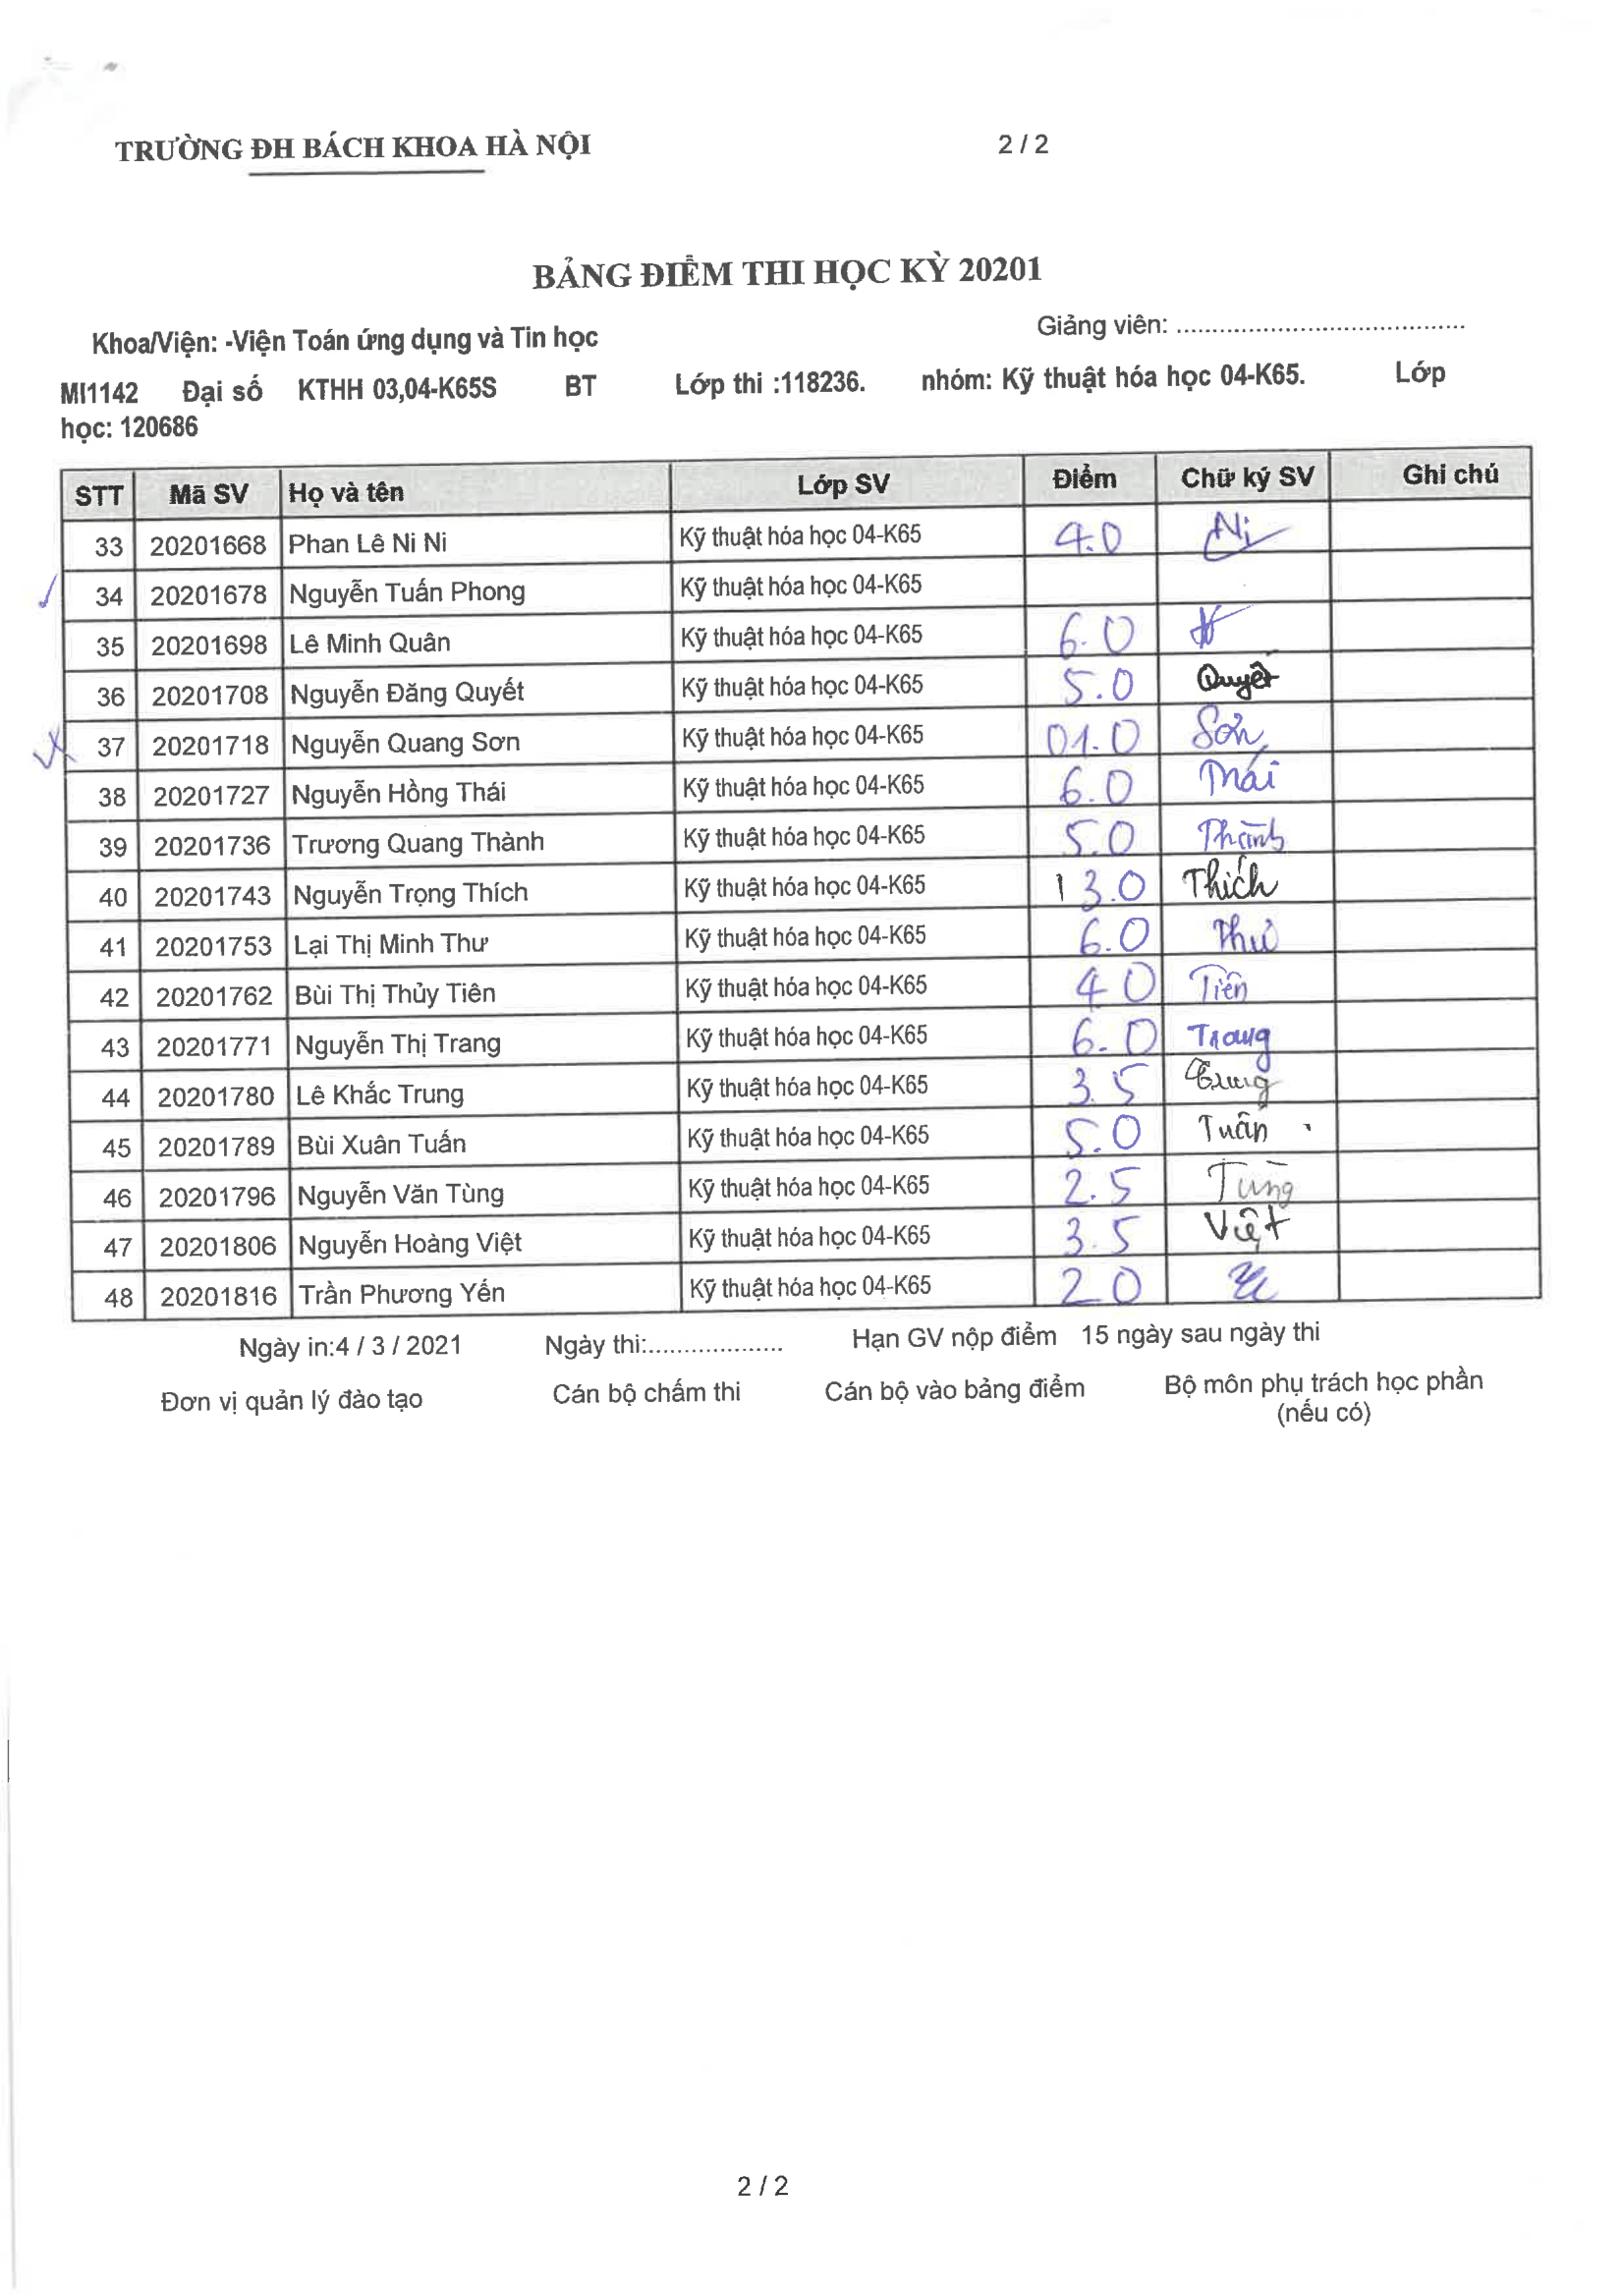 TRƯỜNG ĐH BÁCH KHOA HÀ NỘI 2 / 2
BẢNG ĐIỂM THI HỌC KỲ 20201
Khoa/Viện: -Viện Toán ứng dụng và Tin học Giảng viên: ........................................
MI1142 Đại số KTHH 03,04-K65S BT Lớp thi :118236. nhóm: Kỹ thuật hóa học 04-K65. Lớp
học: 120686
STT Mã SV Họ và tên Lớp SV Điểm Chữ ký SV Ghi chú
33 20201668 Phan Lê Ni Ni Kỹ thuật hóa học 04-K65 4.0 Ni
34 20201678 Nguyễn Tuấn Phong Kỹ thuật hóa học 04-K65
35 20201698 Lê Minh Quân Kỹ thuật hóa học 04-K65 6.0
36 20201708 Nguyễn Đăng Quyết Kỹ thuật hóa học 04-K65 5.0 Quyết
37 20201718 Nguyễn Quang Sơn Kỹ thuật hóa học 04-K65 01.0 Sơn
38 20201727 Nguyễn Hồng Thái Kỹ thuật hóa học 04-K65 6.0 Thái
39 20201736 Trương Quang Thành Kỹ thuật hóa học 04-K65 5.0 Thành
40 20201743 Nguyễn Trọng Thích Kỹ thuật hóa học 04-K65 3.0 Thích
41 20201753 Lại Thị Minh Thư Kỹ thuật hóa học 04-K65 6.0 Thư
42 20201762 Bùi Thị Thủy Tiên Kỹ thuật hóa học 04-K65 4 0 Tiên
43 20201771 Nguyễn Thị Trang Kỹ thuật hóa học 04-K65 6.0 Trang
44 20201780 Lê Khắc Trung Kỹ thuật hóa học 04-K65 3.5 Trung
45 20201789 Bùi Xuân Tuấn Kỹ thuật hóa học 04-K65 5.0 Tuấn
46 20201796 Nguyễn Văn Tùng Kỹ thuật hóa học 04-K65 2.5 Tùng
47 20201806 Nguyễn Hoàng Việt Kỹ thuật hóa học 04-K65 3.5 Việt
48 20201816 Trần Phương Yến Kỹ thuật hóa học 04-K65 2 0
Ngày in:4 / 3 / 2021 Ngày thi:................... Hạn GV nộp điểm 15 ngày sau ngày thi
Đơn vị quản lý đào tạo Cán bộ chấm thi Cán bộ vào bảng điểm Bộ môn phụ trách học phần
(nếu có)
2 / 2